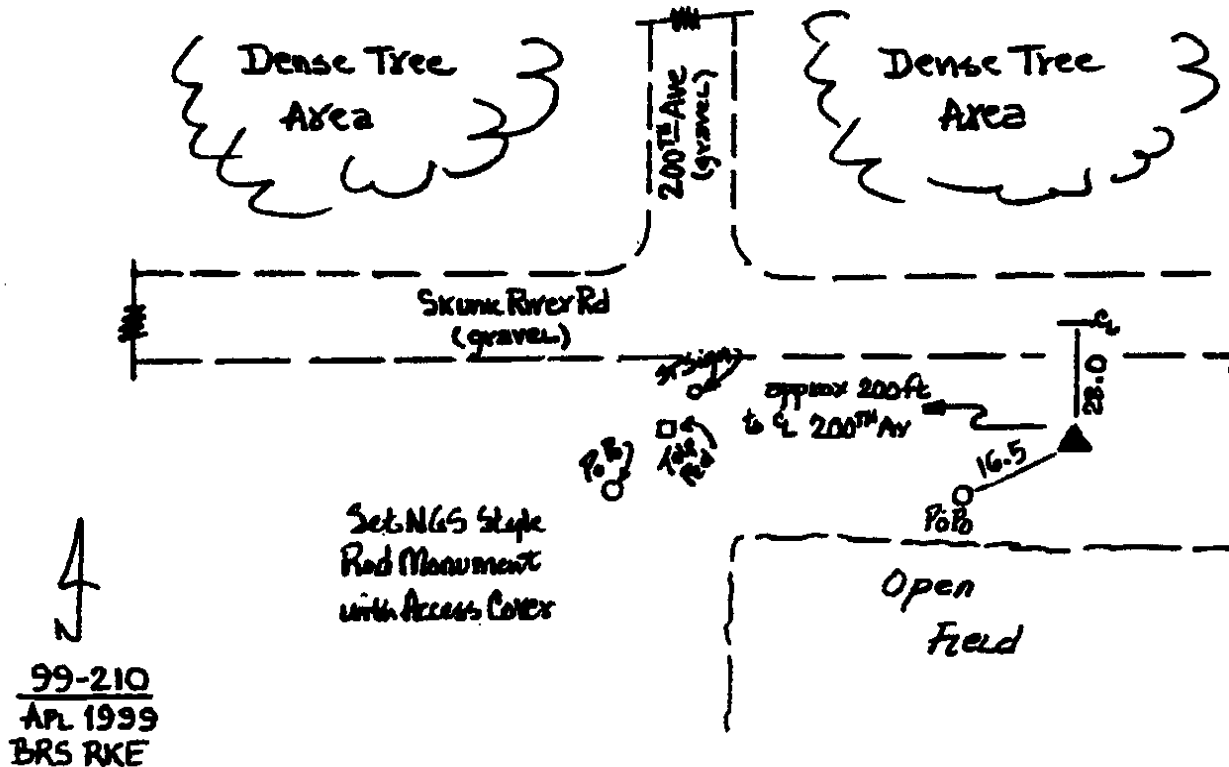 Dense Tree
Area
200TH Ave
(gravel)
Dense Tree
Area
Skunk River Rd
(gravel)
CL
28.0
St Sign
approx 200ft
to CL 200TH Av
16.5
PoPo
Tele
Ped
PoPo
Set NGS Style
Rod Monument
with Access Cover
Open
Field
N
99-210
APL 1999
BRS RKE